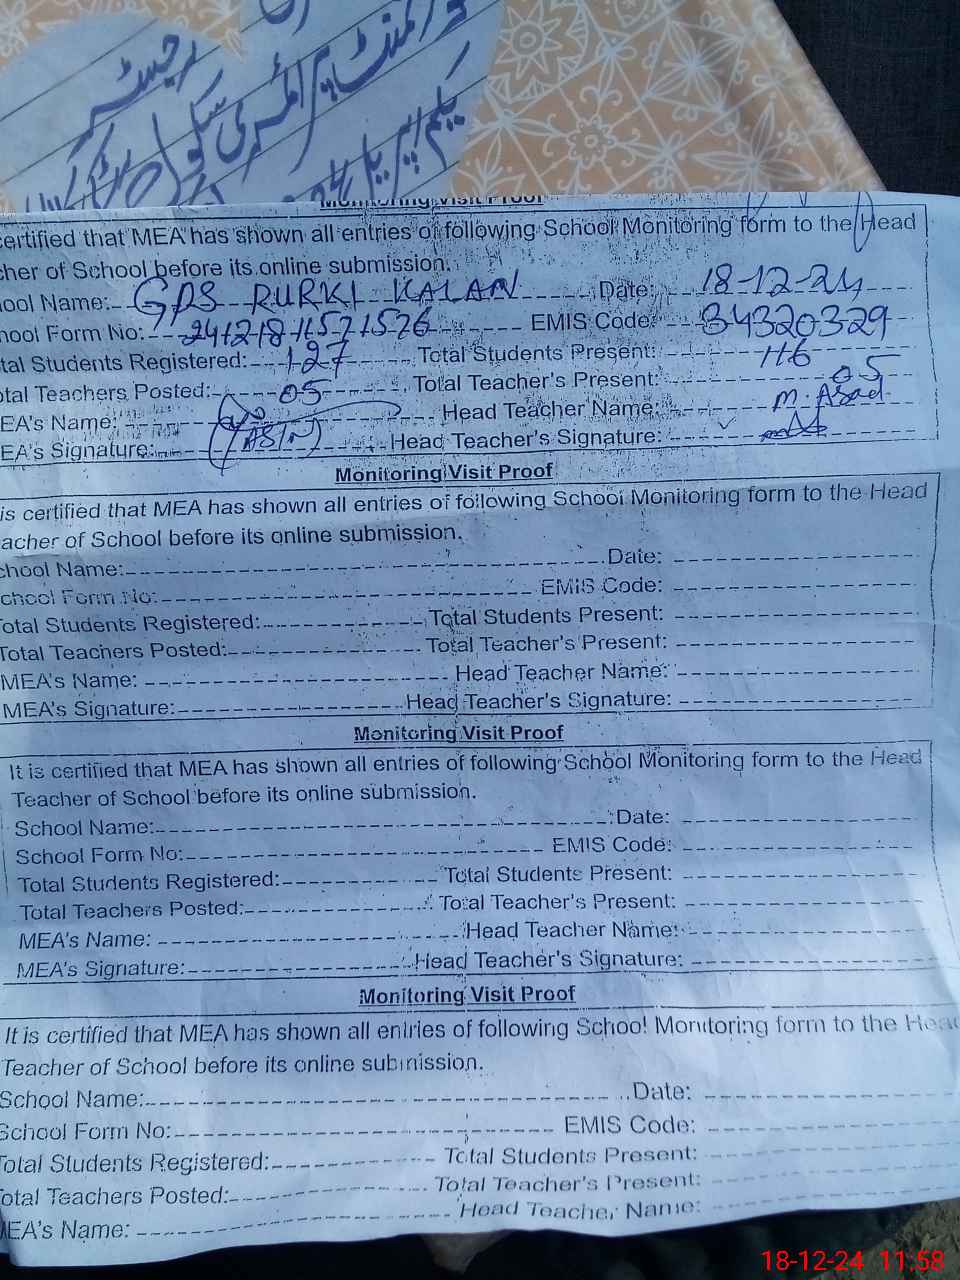 رجسٹر
گورنمنٹ پرائمری سکول
یکم اپریل
Monitoring Visit Proof
certified that MEA has shown all entries of following School Monitoring form to the Head
cher of School before its online submission.
ool Name: GPS RURKI KALAN Date: 18-12-24
hool Form No: EMIS Code: 34320329
tal Students Registered: 127 Total Students Present: 116
otal Teachers Posted: 05 Total Teacher's Present: 05
EA's Name: Head Teacher Name: M. Asad
EA's Signature: Head Teacher's Signature:
Monitoring Visit Proof
is certified that MEA has shown all entries of following School Monitoring form to the Head
acher of School before its online submission.
chool Name: Date:
chool Form No: EMIS Code:
Total Students Registered: Total Students Present:
Total Teachers Posted: Total Teacher's Present:
MEA's Name: Head Teacher Name:
MEA's Signature: Head Teacher's Signature:
Monitoring Visit Proof
It is certified that MEA has shown all entries of following School Monitoring form to the Head
Teacher of School before its online submission.
School Name: Date:
School Form No: EMIS Code:
Total Students Registered: Total Students Present:
Total Teachers Posted: Total Teacher's Present:
MEA's Name: Head Teacher Name:
MEA's Signature: Head Teacher's Signature:
Monitoring Visit Proof
It is certified that MEA has shown all entries of following School Monitoring form to the Head
Teacher of School before its online submission.
School Name: Date:
School Form No: EMIS Code:
Total Students Registered: Total Students Present:
otal Teachers Posted: Total Teacher's Present:
MEA's Name: Head Teacher Name:
18-12-24 11:58